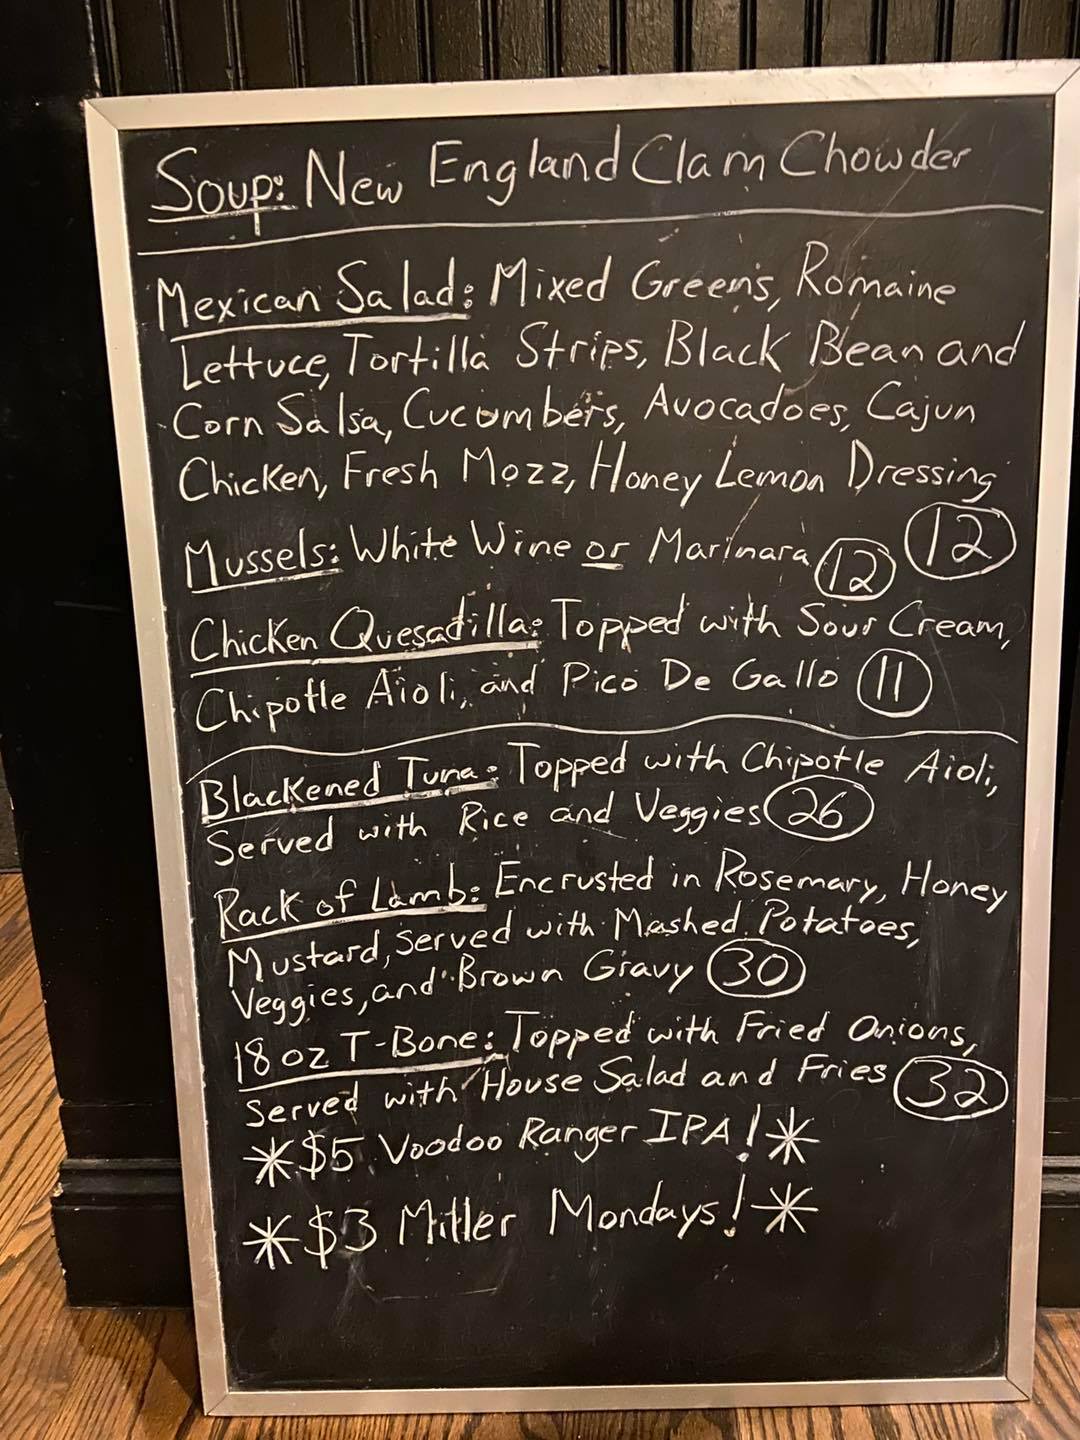 Soup: New England Clam Chowder
Mexican Salad: Mixed Greens, Romaine
Lettuce, Tortilla Strips, Black Bean and
Corn Salsa, Cucumbers, Avocadoes, Cajun
Chicken, Fresh Mozz, Honey Lemon Dressing
12
Mussels: White Wine or Marinara 12
Chicken Quesadilla: Topped with Sour Cream,
Chipotle Aioli, and Pico De Gallo 11
Blackened Tuna: Topped with Chipotle Aioli,
Served with Rice and Veggies 26
Rack of Lamb: Encrusted in Rosemary, Honey
Mustard, Served with Mashed Potatoes,
Veggies, and Brown Gravy 30
18 oz T-Bone: Topped with Fried Onions,
Served with House Salad and Fries 32
*$5 Voodoo Ranger IPA!*
*$3 Miller Mondays!*